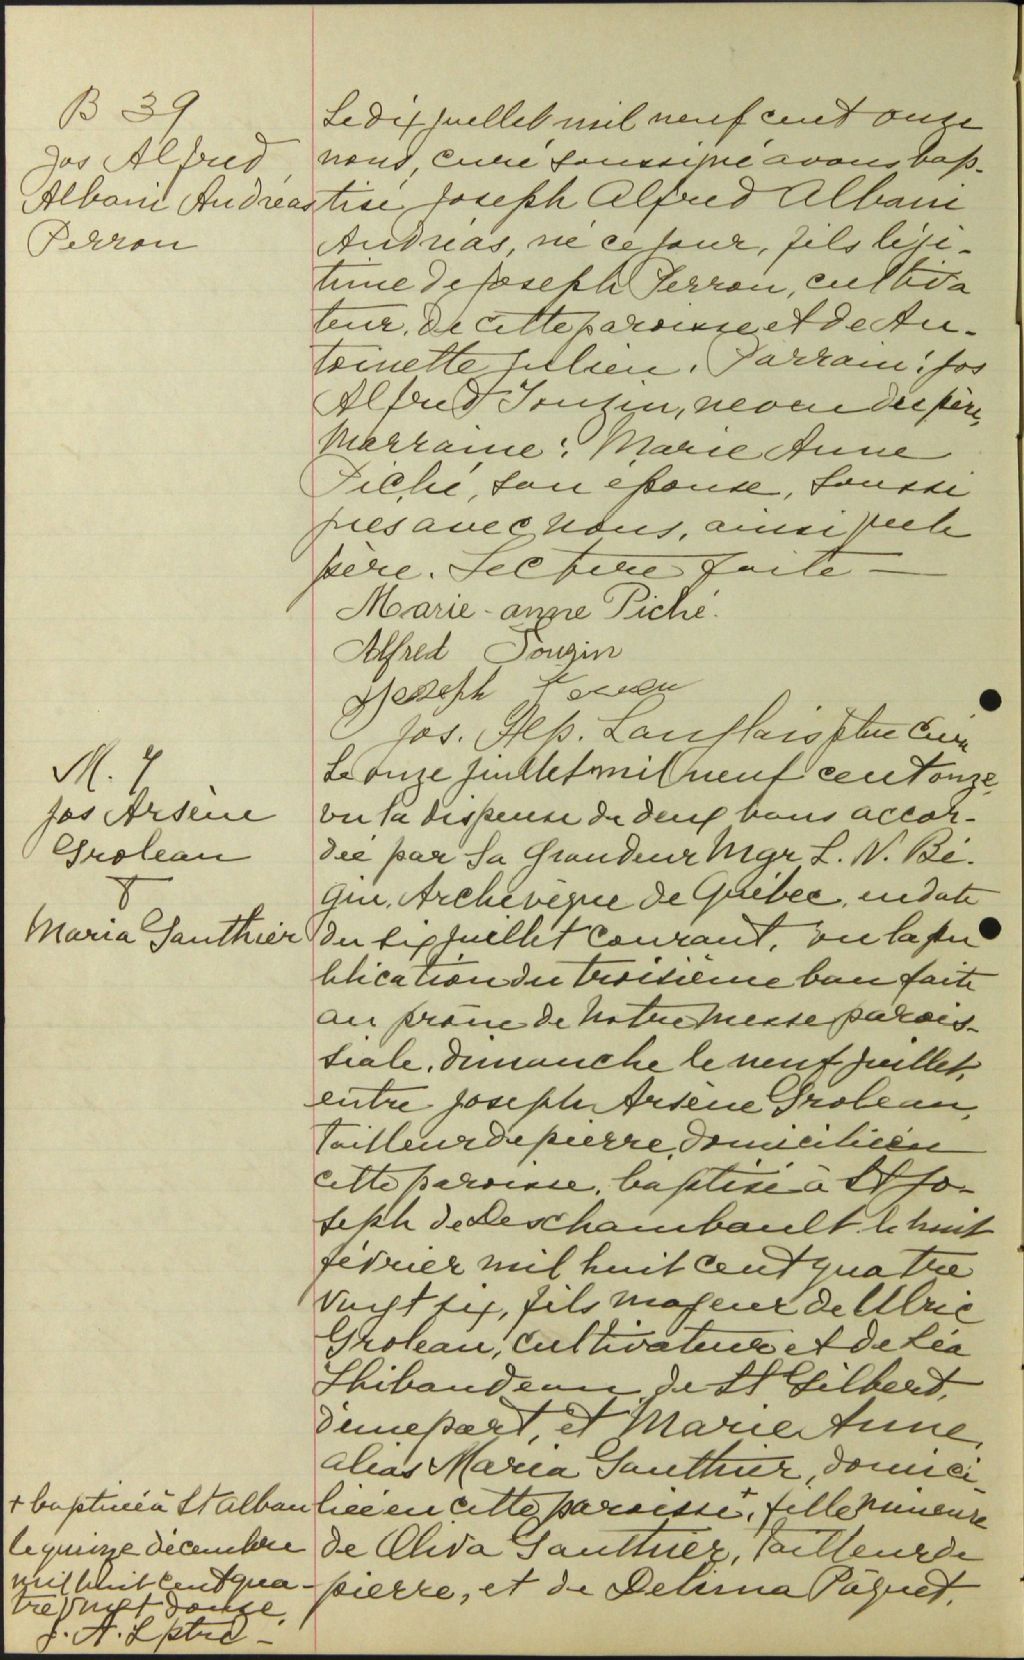 B 39
Jos Alfred
Albani Andréas
Perron
Le dix juillet mil neuf cent onze
nous, curé soussigné avons bap-
tisé Joseph Alfred Albani
Andréas, né ce jour, fils légi-
time de Joseph Perron, cultiva
teur, de cette paroisse et de An-
toinette Julien. Parrain: Jos
Alfred Touzin, neveu du père,
Marraine: Marie Anne
Piché, son épouse, soussi
gnés avec nous, ainsi que le
père. Lecture faite —
Marie-anne Piché.
Alfred Touzin
Joseph Perron
Jos. Alp. Langlais ptre Curé
M. 7
Jos Arsène
Groleau
&
Maria Gauthier
Le onze juillet mil neuf cent onze,
vu la dispense de deux bans accor-
dée par Sa Grandeur Mgr L. N. Bé-
gin, Archevêque de Québec, en date
du six juillet courant, vu la pu
blication du troisième ban faite
au prône de notre messe parois-
siale, dimanche le neuf juillet,
entre Joseph Arsène Groleau,
tailleur de pierre, domicilié en
cette paroisse, baptisé à St Jo-
seph de Deschambault le huit
février mil huit cent quatre
vingt six, fils majeur de Ulric
Groleau, cultivateur et de Léa
Thibaudeau, de St Gilbert,
d'une part, et Marie Anne,
alias Maria Gauthier, domici-
liée en cette paroisse +, fille mineure
de Oliva Gauthier, tailleur de
pierre, et de Delima Pâquet,
+ baptisée à St Alban
le quinze décembre
mil huit cent qua-
tre vingt douze.
J. A. L ptre —